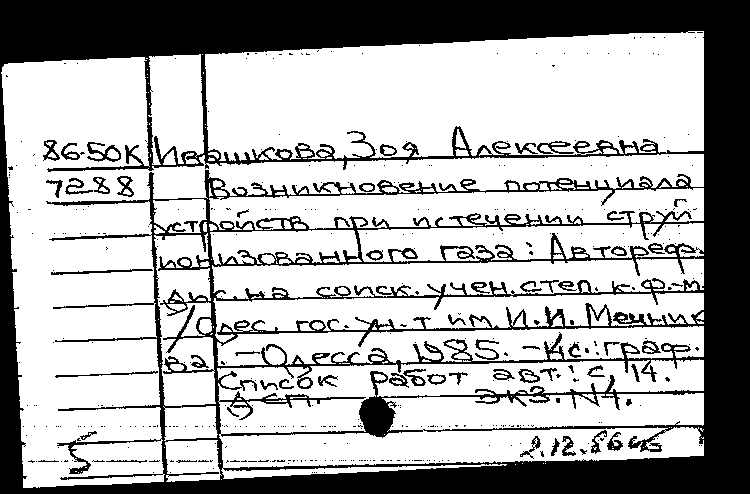 86-50К Ивашкова, Зоя Алексеевна.
7288 Возникновение потенциала
устройств при истечении струй
ионизованного газа : Автореф.
дис. на соиск. учен. степ. к. ф.-м.
/ Одес. гос. ун-т им. И.И. Мечник
ва. - Одесса, 1985. - с. : граф.
Список работ авт.: с, 14.
Деп. экз. N4.
5 2.12.86